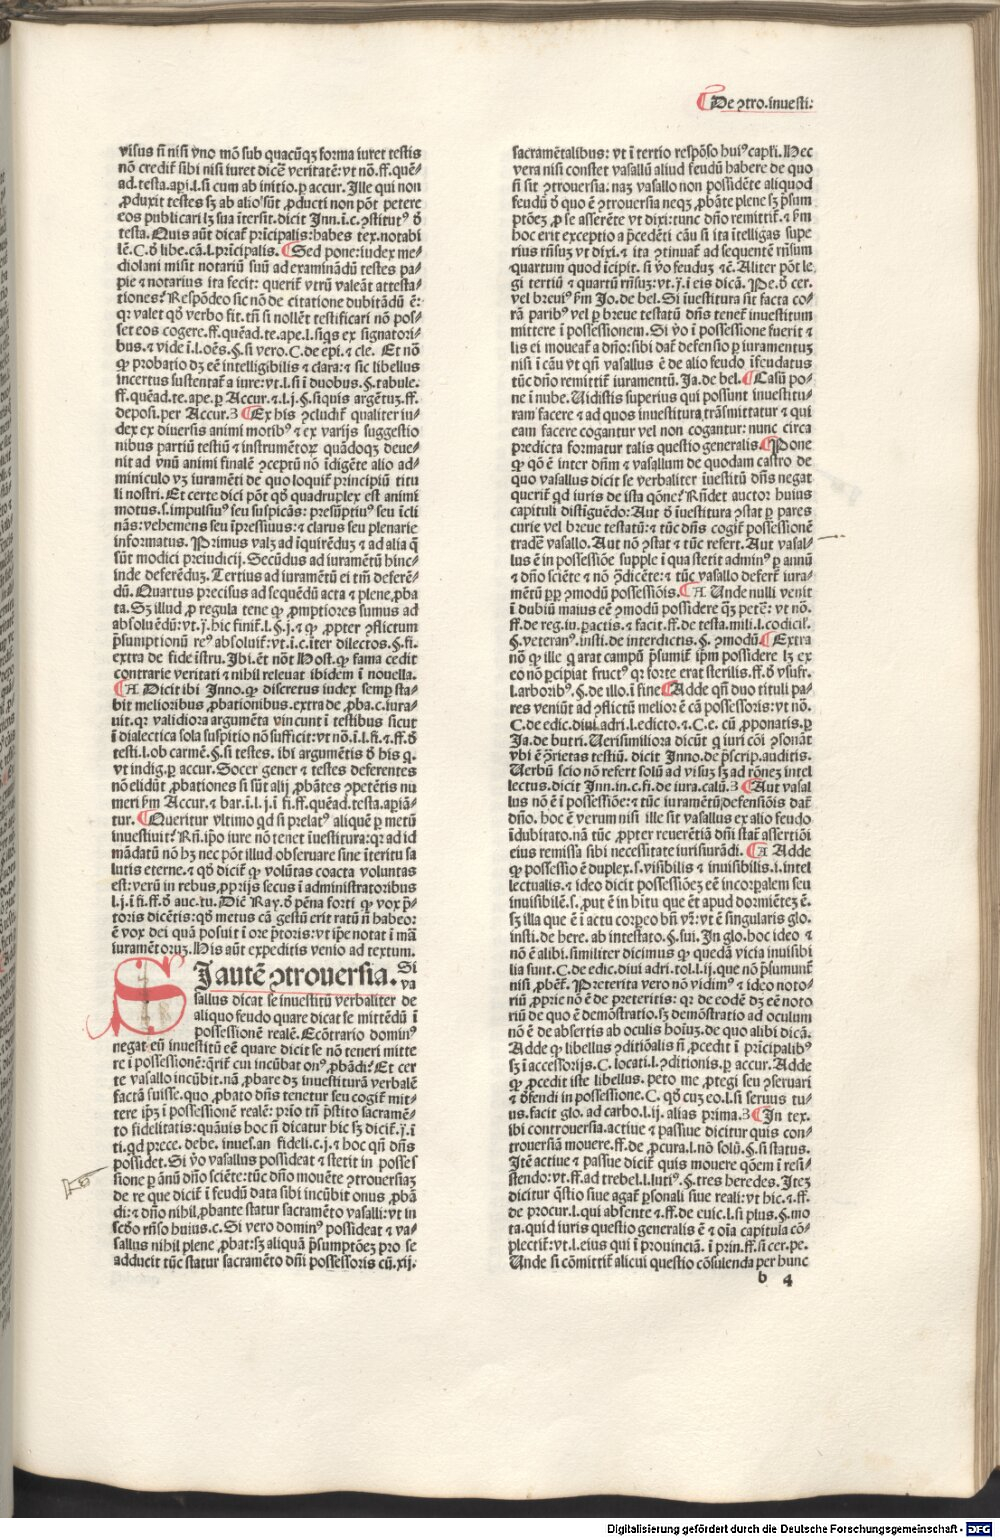 De ꝯtro.inuesti:
visus ñ nisi vno mõ sub quacũqꝫ forma iuret testis
nõ credit᷑ sibi nisi iuret dicẽ veritatẽ: vt nõ.ff.quẽ⸗
ad.testa.api.l.si cum ab initio.ꝑ accur. Ille qui non
ꝓduxit testes sꝫ ab alio sũt ꝓducti non põt petere
eos publicari lꝫ sua ĩtersit.dicit Inn.ĩ.c.ꝯstitutꝰ ð
testa. Quis aũt dicat᷑ prĩcipalis: habes tex.notabi
lẽ.C.ð libe.cã.l.prĩcipalis. Sed pone: iudex me⸗
diolani misit notariũ suũ ad examinãdũ testes pa⸗
pie ⁊ notarius ita fecit: querit᷑ vtrũ valeãt attesta⸗
tiones? Respõdeo sic nõ de citatione dubitãdũ ẽ:
qꝛ valet qð verbo fit. tñ si nollẽt testificari nõ pos⸗
set eos cogere.ff.quẽad.te.ape.l.siqs ex signatori⸗
bus.⁊ vide ĩ.l.oẽs.§.si vero.C.de epi.⁊ cle. Et nõ
ꝙ probatio dꝫ eẽ intelligibilis ⁊ clara: ⁊ sic libellus
incertus sustentat᷑ a iure: vt.l.si ĩ duobus.§.tabule.
ff.quẽad.te.ape.ꝑ Accur.⁊.l.j.§.siquis argẽtuꝫ.ff.
deposi.per Accur.3 Ex his ꝯcludit᷑ qualiter iu⸗
dex ex diuersis animi motibꝰ ⁊ ex varijs suggestio
nibus partiũ testiũ ⁊ instrumẽtoꝝ quãdoqꝫ deue⸗
nit ad vnũ animi finalẽ ꝯceptũ nõ ĩdigẽte alio ad⸗
miniculo vꝫ iuramẽti de quo loquit᷑ principiũ titu
li nostri. Et certe dici põt qð quadruplex est animi
motus.s.impulsiuꝰ seu suspicãs: presũptiuꝰ seu ĩcli
nãs: vehemens seu ĩpressiuus: ⁊ clarus seu plenarie
informatus. Primus valꝫ ad ĩquirẽduꝫ ⁊ ad alia q̃
sũt modici preiudicij. Secũdus ad iuramẽtũ hinc⸗
inde deferẽduꝫ. Tertius ad iuramẽtũ ei tm̃ deferẽ⸗
dũ. Quartus precisus ad sequẽdũ acta ⁊ plene ꝓba
ta. Sꝫ illud ꝓ regula tene ꝙ ꝓmptiores sumus ad
absoluẽdũ: vt.ĵ.hic finit᷑.l.§.j.⁊ ꝙ ꝓpter ꝯflictum
p̃sumptionũ reꝰ absoluit᷑: vt.ĩ.c.ĩter dilectos.§.fi.
extra de fide ĩstru. Ibi.ẽt nõt Host.ꝙ fama cedit
contrarie veritati ⁊ nihil releuat ibidem ĩ nouella.
A Dicit ibi Inno.ꝙ discretus iudex semꝑ sta⸗
bit melioribus ꝓbationibus.extra de ꝓba.c.iura⸗
uit.qꝛ validiora argumẽta vincunt ĩ testibus sicut
ĩ dialectica sola suspitio nõ sufficit: vt nõ.ĩ.l.fi.⁊.ff.ð
testi.l.ob carmẽ.§.si testes. ibi argumẽtis ð his q.
vt indig.ꝑ accur. Socer gener ⁊ testes deferentes
nõ elidũt ꝓbationes si sũt alij ꝓbãtes ꝯpetẽtis nu
meri ẜm Accur.⁊ bar.ĩ.l.j.ĩ fi.ff.quẽad.testa.apiã⸗
tur. Queritur vltimo qd si prelatꝰ aliquẽ ꝑ metũ
inuestiuit? Rñ.ip̃o iure nõ tenet ĩuestitura: qꝛ ad id
mãdatũ nõ hꝫ nec põt illud obseruare sine ĩteritu sa
lutis eterne.⁊ qð dicit᷑ ꝙ volũtas coacta voluntas
est: verũ in rebus ꝓprijs secus ĩ administratoribus
l.j.ĩ fi.ff.ð auc.tu. Dicẽ Ray.ð pẽna forti ꝙ vox p̃⸗
toris dicẽtis: qð metus cã gestũ erit ratũ ñ habeo:
ẽ vox dei quã posuit ĩ ore p̃toris: vt ip̃e notat ĩ mã
iuramẽtoꝝ. His aũt expeditis venio ad textum.
SI autẽ ꝯtrouersia. Si
va
sallus dicat se ĩnuestitũ verbaliter de
aliquo feudo quare dicat se mittẽdũ ĩ
possessionẽ realẽ. Ecõtrario dominꝰ
negat eũ inuestitũ eẽ quare dicit se nõ teneri mitte
re ĩ possessionẽ: q̃rit᷑ cui incũbat onꝰ ꝓbãdi? Et cer
te vasallo incũbit. nã ꝓbare dꝫ inuesturã verbalẽ
factã fuisse. quo ꝓbato dñs tenetur seu cogit᷑ mit⸗
tere ip̃ꝫ ĩ possessionẽ realẽ: prĩo tñ p̃stito sacramẽ⸗
to fidelitatis: quãuis hoc ñ dicatur hic sꝫ dicit᷑.ĵ.ĩ
ti.qd prece.debe.inues.an fideli.c.j.⁊ hoc qñ dñs
possidet. Si v̊o vasallus possideat ⁊ stetit in posses
sione ꝑ ãnũ dño sciẽte: tũc dño mouẽte ꝯtrouersiaꝫ
de re que dicit᷑ ĩ feudũ data sibi incũbit onus ꝓbã
di: ⁊ dño nihil ꝓbante statur sacramẽto vasalli: vt in
scðo rñso huius.c. Si vero dominꝰ possideat ⁊ va⸗
sallus nihil plene ꝓbat: sꝫ aliquã p̃sumptõeꝫ pro se
adducit tũc statur sacramẽto dñi possessoris cũ.xij.
sacramẽtalibus: vt ĩ tertio respõso huiꝰ capł̃i. Hec
vera nisi constet vasallũ aliud feudũ habere de quo
ñ sit ꝯtrouersia: naꝫ vasallo non possidẽte aliquod
feudũ ð quo ẽ ꝯtrouersia neqꝫ ꝓbãte plene sꝫ p̃sum
ptõeꝫ ꝓ se asserẽte vt dixi: tunc dño remittit᷑.⁊ ẜm
hoc erit exceptio a p̃cedẽti cãu si ita ĩtelligas supe
rius rñsuꝫ vt dixi.⁊ ita ꝯtinuat᷑ ad sequentẽ rñsum
quartum quod ĩcipit. si v̊o feuduꝫ ⁊ẽ. Aliter põt le⸗
gi tertiũ ⁊ quartũ rñsuꝫ: vt.ĵ.ĩ eis dicã. Pe.ð cer.
vel breuiꝰ ẜm Jo.de bel. Si ĩuestitura sit facta co⸗
rã paribꝰ vel ꝑ breue testatũ dñs tenet᷑ inuestitum
mittere ĩ possessionem. Si v̊o ĩ possessione fuerit ⁊
lis ei moueat᷑ a dño: sibi dat᷑ defensio ꝑ iuramentuꝫ
nisi ĩ cãu vt qñ vasallus ẽ de alio feudo ĩfeudatus
tũc dño remittit᷑ iuramentũ. Ja.de bel. Casũ po⸗
ne ĩ nube. Vidistis superius qui possunt inuestitu⸗
ram facere ⁊ ad quos inuestitura trãsmittatur ⁊ qui
eam facere cogantur vel non cogantur: nunc circa
predicta formatur talis questio generalis. Pone
ꝙ qõ ẽ inter dñm ⁊ vasallum de quodam castro de
quo vasallus dicit se verbaliter ĩuestitũ dñs negat
querit᷑ qd iuris de ista qõne? Rñdet auctor huius
capituli distĩguẽdo: Aut ð ĩuestitura ꝯstat ꝑ pares
curie vel breue testatũ: ⁊ tũc dñs cogit᷑ possessionẽ
tradẽ vasallo. Aut nõ ꝯstat ⁊ tũc refert. Aut vasal⸗
lus ẽ in possessiõe supple ĩ qua stetit adminꝰ ꝑ annũ
⁊ dño sciẽte ⁊ nõ ꝯ̃dicẽte: ⁊ tũc vasallo defert᷑ iura⸗
mẽtũ ꝑꝑ ꝯmodũ possessiõis. A Unde nulli venit
ĩ dubiũ maius eẽ ꝯmodũ possidere qꝫ petẽ: vt nõ.
ff.de reg.iu.ꝑactis.⁊ facit.ff.de testa.mili.l.codicil.
§.veteranꝰ.insti.de interdictis.§.ꝯmodũ. Extra
nõ ꝙ ille q arat campũ p̃sumit᷑ ip̃m possidere lꝫ ex
eo nõ ꝑcipiat fructꝰ qꝛ forte erat sterilis.ff.ð vsufr.
l.arboribꝰ.§.de illo.ĩ fine Adde qñ duo tituli pa⸗
res veniũt ad ꝯflictũ melior ẽ cã possessoris: vt nõ.
C.de edic.diui.adri.l.edicto.⁊.C.e.cũ ꝓponatis.ꝑ
Ja.de butri. Uerisimiliora dicũt q iuri cõi ꝯsonãt
vbi ẽ ꝯ̃rietas testiũ. dicit Inno.de p̃scrip.auditis.
Uerbũ scio nõ refert solũ ad visuꝫ sꝫ ad rõneꝫ intel
lectus. dicit Inn.in.c.fi.de iura.calũ.3 Aut vasal
lus nõ ẽ ĩ possessiõe: ⁊ tũc iuramẽtũ defensiõis dat᷑
dño. hoc ẽ verum nisi ille sit vasallus ex alio feudo
ĩdubitato. nã tũc ꝓpter reuerẽtiã dñi stat᷑ assertiõi
eius remissa sibi necessitate iurisiurãdi. A Adde
ꝙ possessio ẽ duplex.s.visibilis ⁊ inuisibilis.i.intel
lectualis.⁊ ideo dicit possessiõeꝫ eẽ incorꝑalem seu
inuisibilẽ.s.ꝓut ẽ in hĩtu que ẽt apud dormiẽteꝫ ẽ.
sꝫ illa que ẽ ĩ actu corꝑeo bñ vr̃: vt ẽ singularis glo.
insti.de here.ab intestato.§.sui. In glo.hoc ideo ⁊
nõ ẽ alibi. similiter dicimus ꝙ quedã vicia inuisibi
lia sunt.C.de edic.diui adri.tol.l.ij.que nõ p̃sumunt᷑
nisi ꝓbẽt᷑. Preterita vero nõ vidimꝰ ⁊ ideo noto⸗
riũ ꝓprie nõ ẽ de preteritis: qꝛ de eodẽ dꝫ eẽ noto
riũ de quo ẽ demõstratio. sꝫ demõstratio ad oculum
nõ ẽ de absertis ab oculis hoĩuꝫ. de quo alibi dicã.
Adde ꝙ libellus ꝯditiõalis ñ ꝓcedit ĩ prĩcipalibꝰ
sꝫ ĩ accessorijs.C.locati.l.ꝯditionis.ꝑ accur. Adde
ꝙ ꝓcedit iste libellus. peto me ꝓtegi seu ꝯseruari
⁊ ðfendi in possessione.C.qð cuꝫ eo.l.si seruus tu⸗
us.facit glo.ad carbo.l.ij.alias prima.3 In tex.
ibi controuersia. actiue ⁊ passiue dicitur quis con⸗
trouersiã mouere.ff.de ꝓcura.l.nõ solũ.§.si status.
Itẽ actiue ⁊ passiue dicit᷑ quis mouere qõem ĩ resi⸗
stendo: vt.ff.ad trebel.l.lutiꝰ.§.tres heredes. Iteꝫ
dicitur q̃stio siue agat᷑ ꝑsonali siue reali: vt hic.⁊.ff.
de procur.l.qui absente ⁊.ff.de euic.l.si plus.§.mo
ta.quid iuris questio generalis ẽ ⁊ oĩa capitula cõ⸗
plectit᷑: vt.l.eius qui ĩ prouinciã.ĩ prin.ff.si cer.pe.
Unde si cõmittit᷑ alicui questio cõsulenda per hunc
b 4
Digitalisierung gefördert durch die Deutsche Forschungsgemeinschaft - DFG